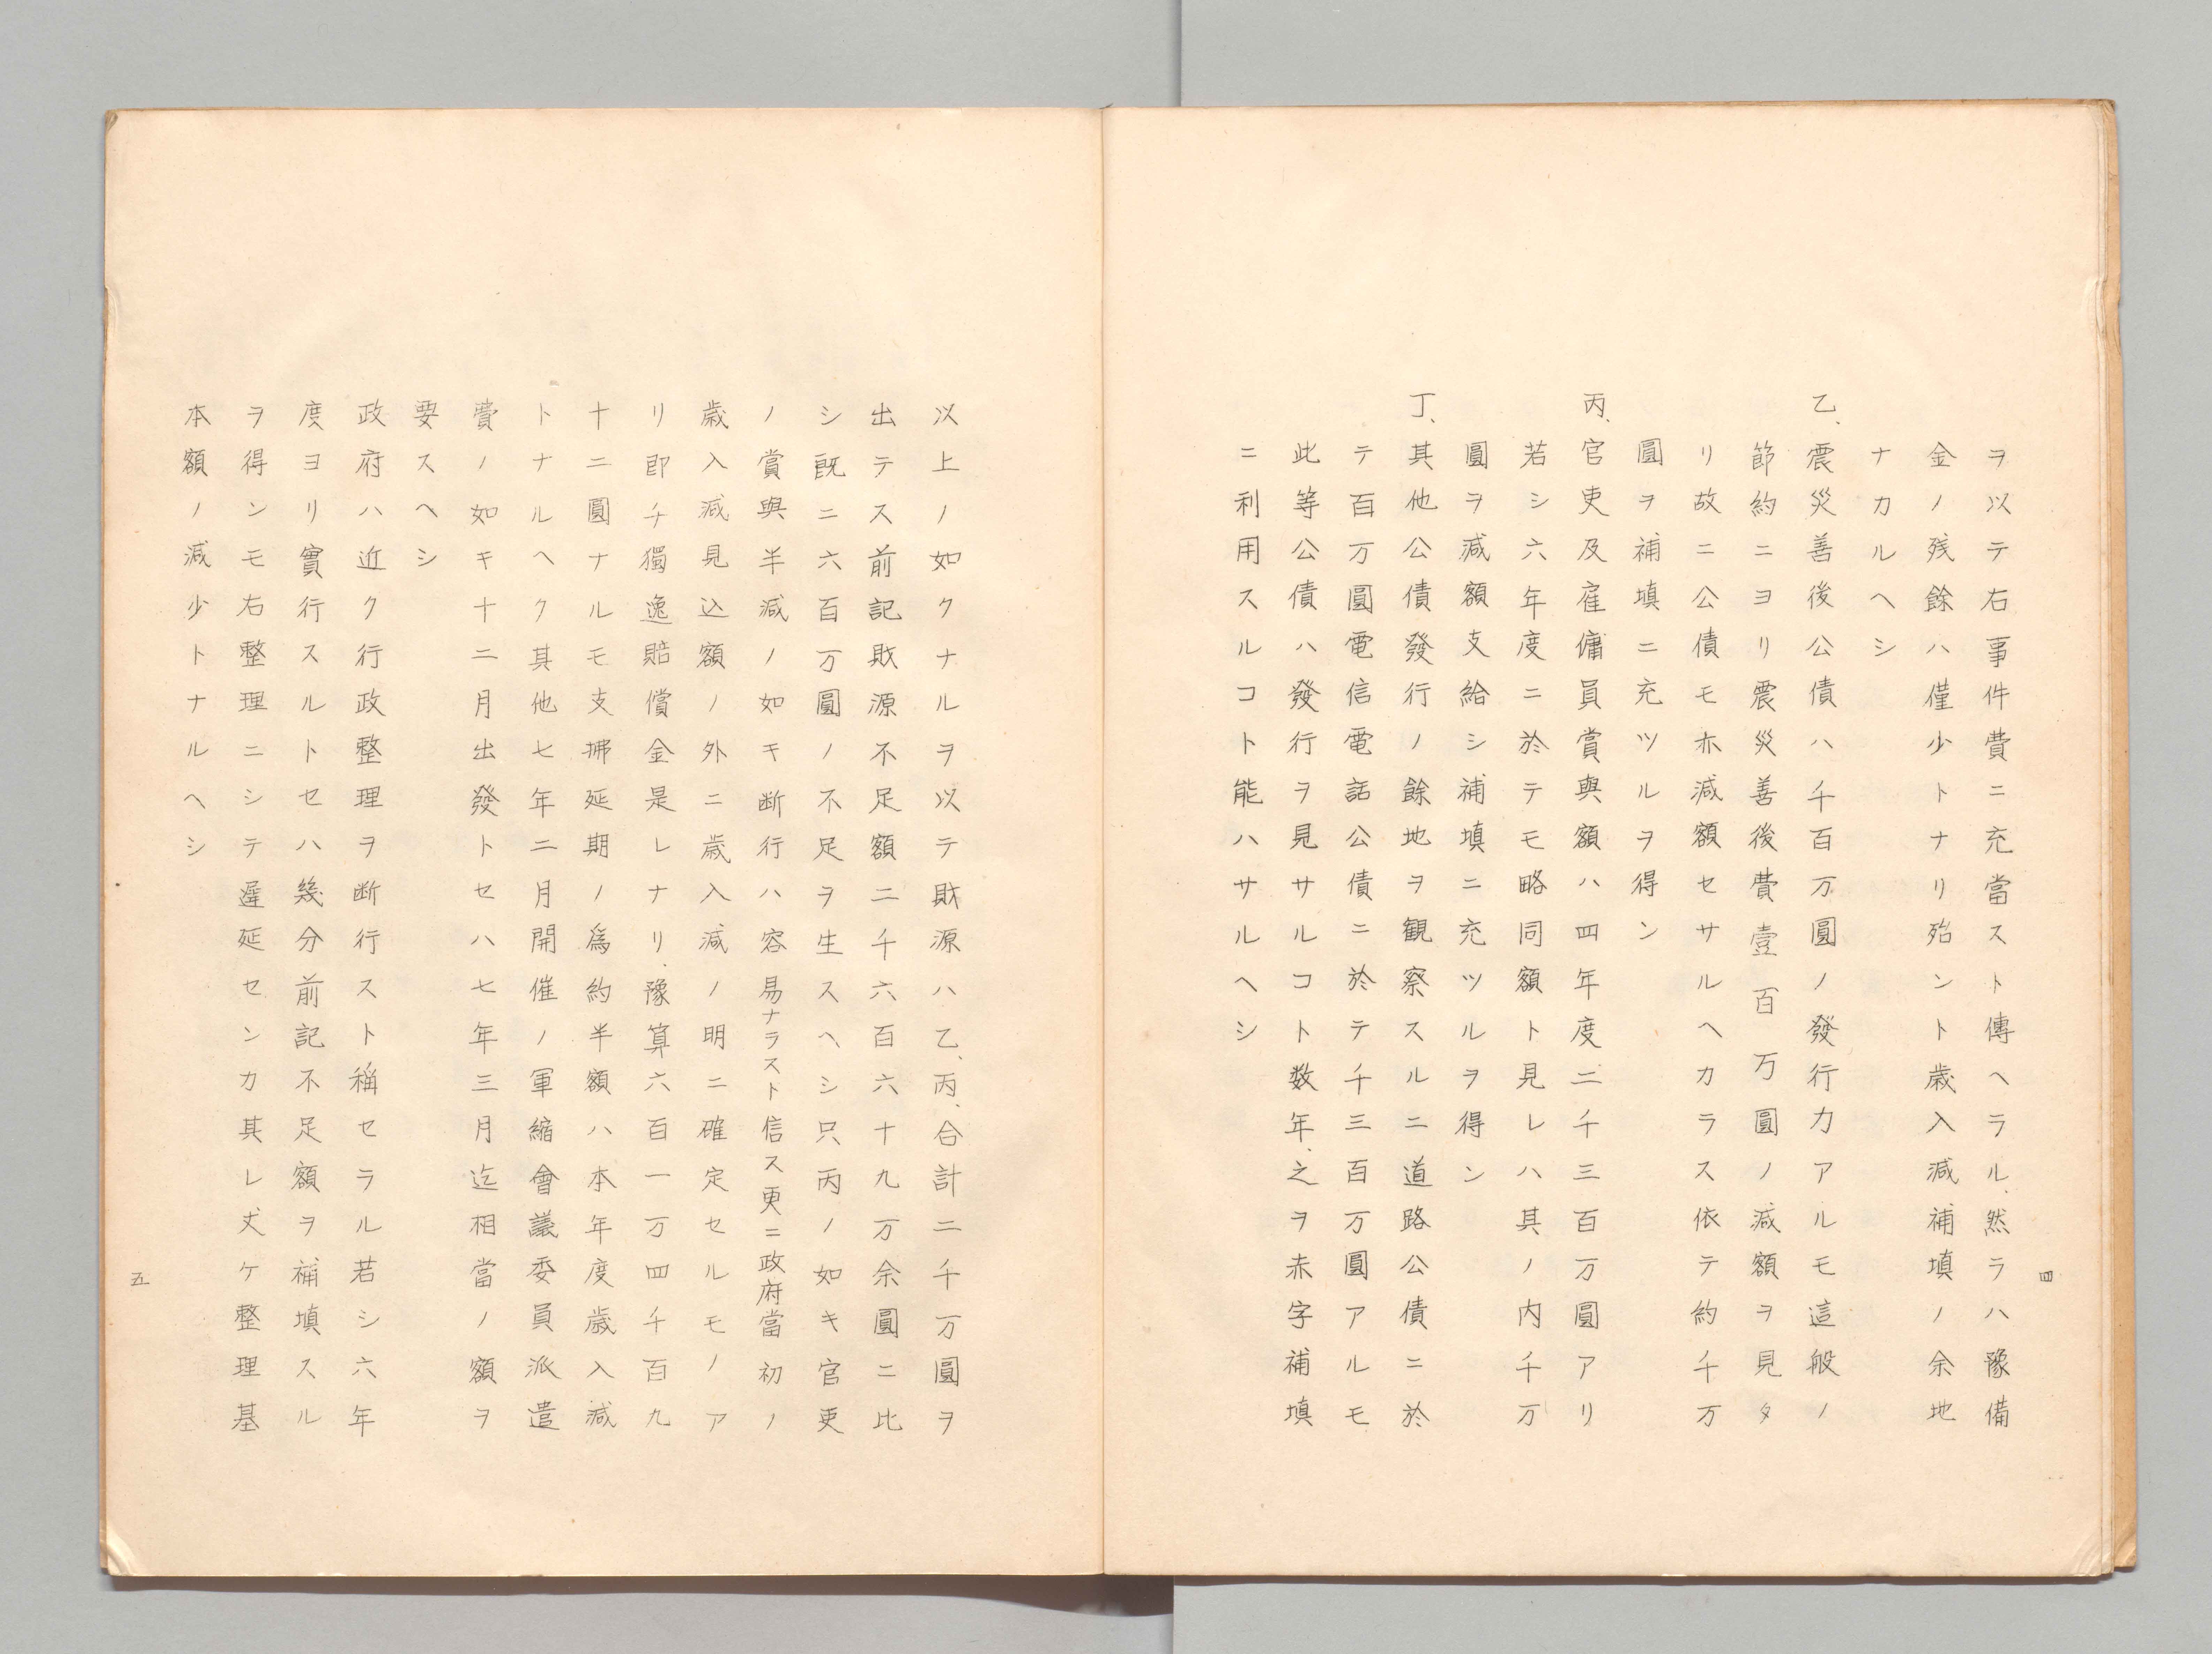 四
ヲ以テ右事件費ニ充當スト傳ヘラル、然ラハ豫備
金ノ残餘ハ僅少トナリ殆ント歳入減補填ノ余地
ナカルヘシ
乙、震災善後公債ハ千百万圓ノ發行力アルモ這般ノ
節約ニヨリ震災善後費壹百万圓ノ減額ヲ見タ
リ故ニ公債モ亦減額セサルヘカラス依テ約千万
圓ヲ補填ニ充ツルヲ得ン
丙、官吏及雇傭員賞與額ハ四年度二千三百万圓アリ
若シ六年度ニ於テモ略同額ト見レハ其ノ内千万
圓ヲ減額支給シ補填ニ充ツルヲ得ン
丁、其他公債發行ノ餘地ヲ観察スルニ道路公債ニ於
テ百万圓電信電話公債ニ於テ千三百万圓アルモ
此等公債ハ發行ヲ見サルコト数年、之ヲ赤字補填
ニ利用スルコト能ハサルヘシ
以上ノ如クナルヲ以テ財源ハ乙、丙、合計二千万圓ヲ
出テス前記財源不足額二千六百六十九万余圓ニ比
シ既ニ六百万圓ノ不足ヲ生スヘシ只丙ノ如キ官吏
ノ賞與半減ノ如キ断行ハ容易ナラスト信ス更ニ政府當初ノ
歳入減見込額ノ外ニ歳入減ノ明ニ確定セルモノア
リ即チ獨逸賠償金是レナリ、豫算六百一万四千百九
十二圓ナルモ支拂延期ノ爲約半額ハ本年度歳入減
トナルヘク其他七年二月開催ノ軍縮會議委員派遣
費ノ如キ十二月出發トセハ七年三月迄相當ノ額ヲ
要スヘシ
政府ハ近ク行政整理ヲ断行スト稱セラル若シ六年
度ヨリ實行スルトセハ幾分前記不足額ヲ補填スル
ヲ得ンモ右整理ニシテ遲延センカ其レ丈ケ整理基
本額ノ減少トナルヘシ
五